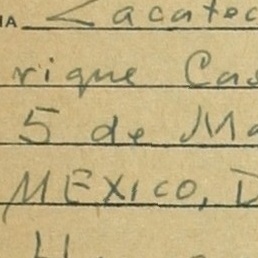 IA Zacatec
rique Cas
5 de Ma
MEXICO, D